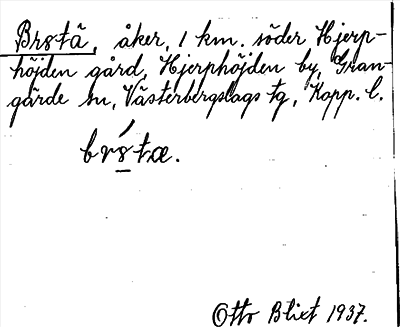 Brötä, åker, 1 km. söder Hjerp-
höjden gård, Hjerphöjden by, Gran-
gärde sn, Västerbergslags tg, Kopp. l.
brötæ.
Otto Blixt 1937.